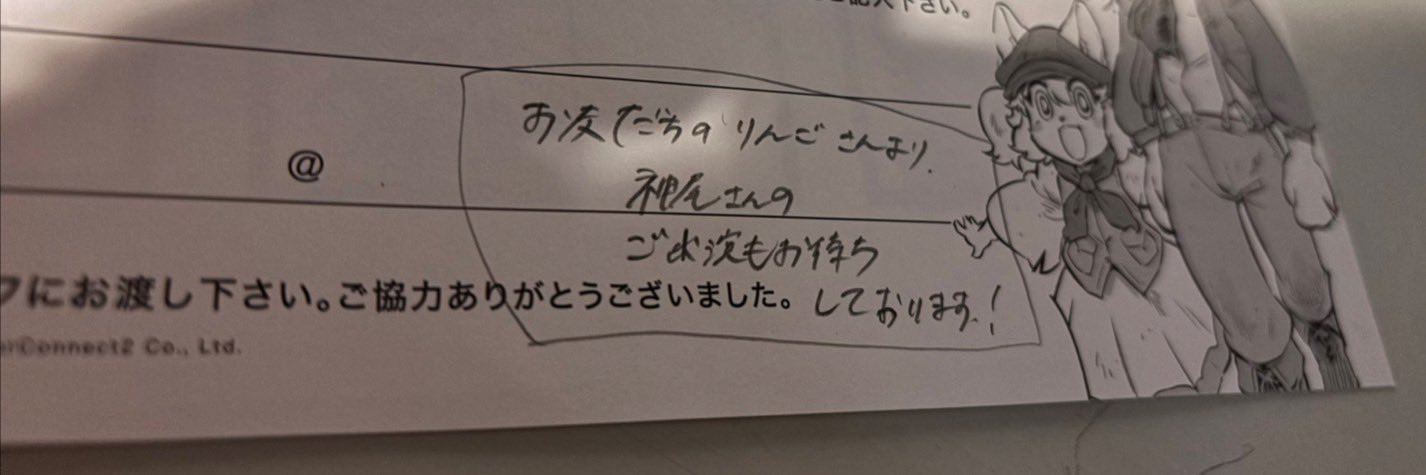 下さい。
@
お友だちのりんごさんより、
神尾さんの
ご出演もお待ち
しております！
にお渡し下さい。ご協力ありがとうございました。
Connect2 Co., Ltd.